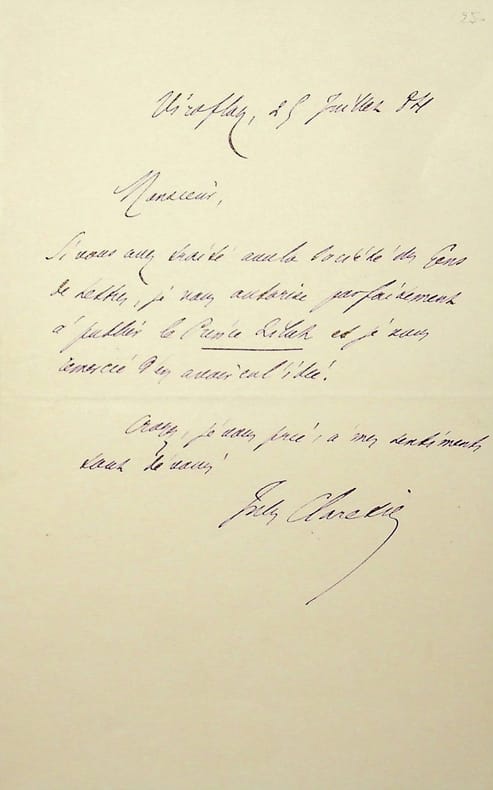 25.
Viroflay, 25 Juillet 84
Monsieur,
Si vous avez traité avec la Société des Gens
de Lettres, je vous autorise parfaitement
à publier le Prince Zilah et je vous
remercie d'en avoir eu l'idée.
Croyez, je vous prie, à mes sentiments
tout dévoués
Jules Claretie